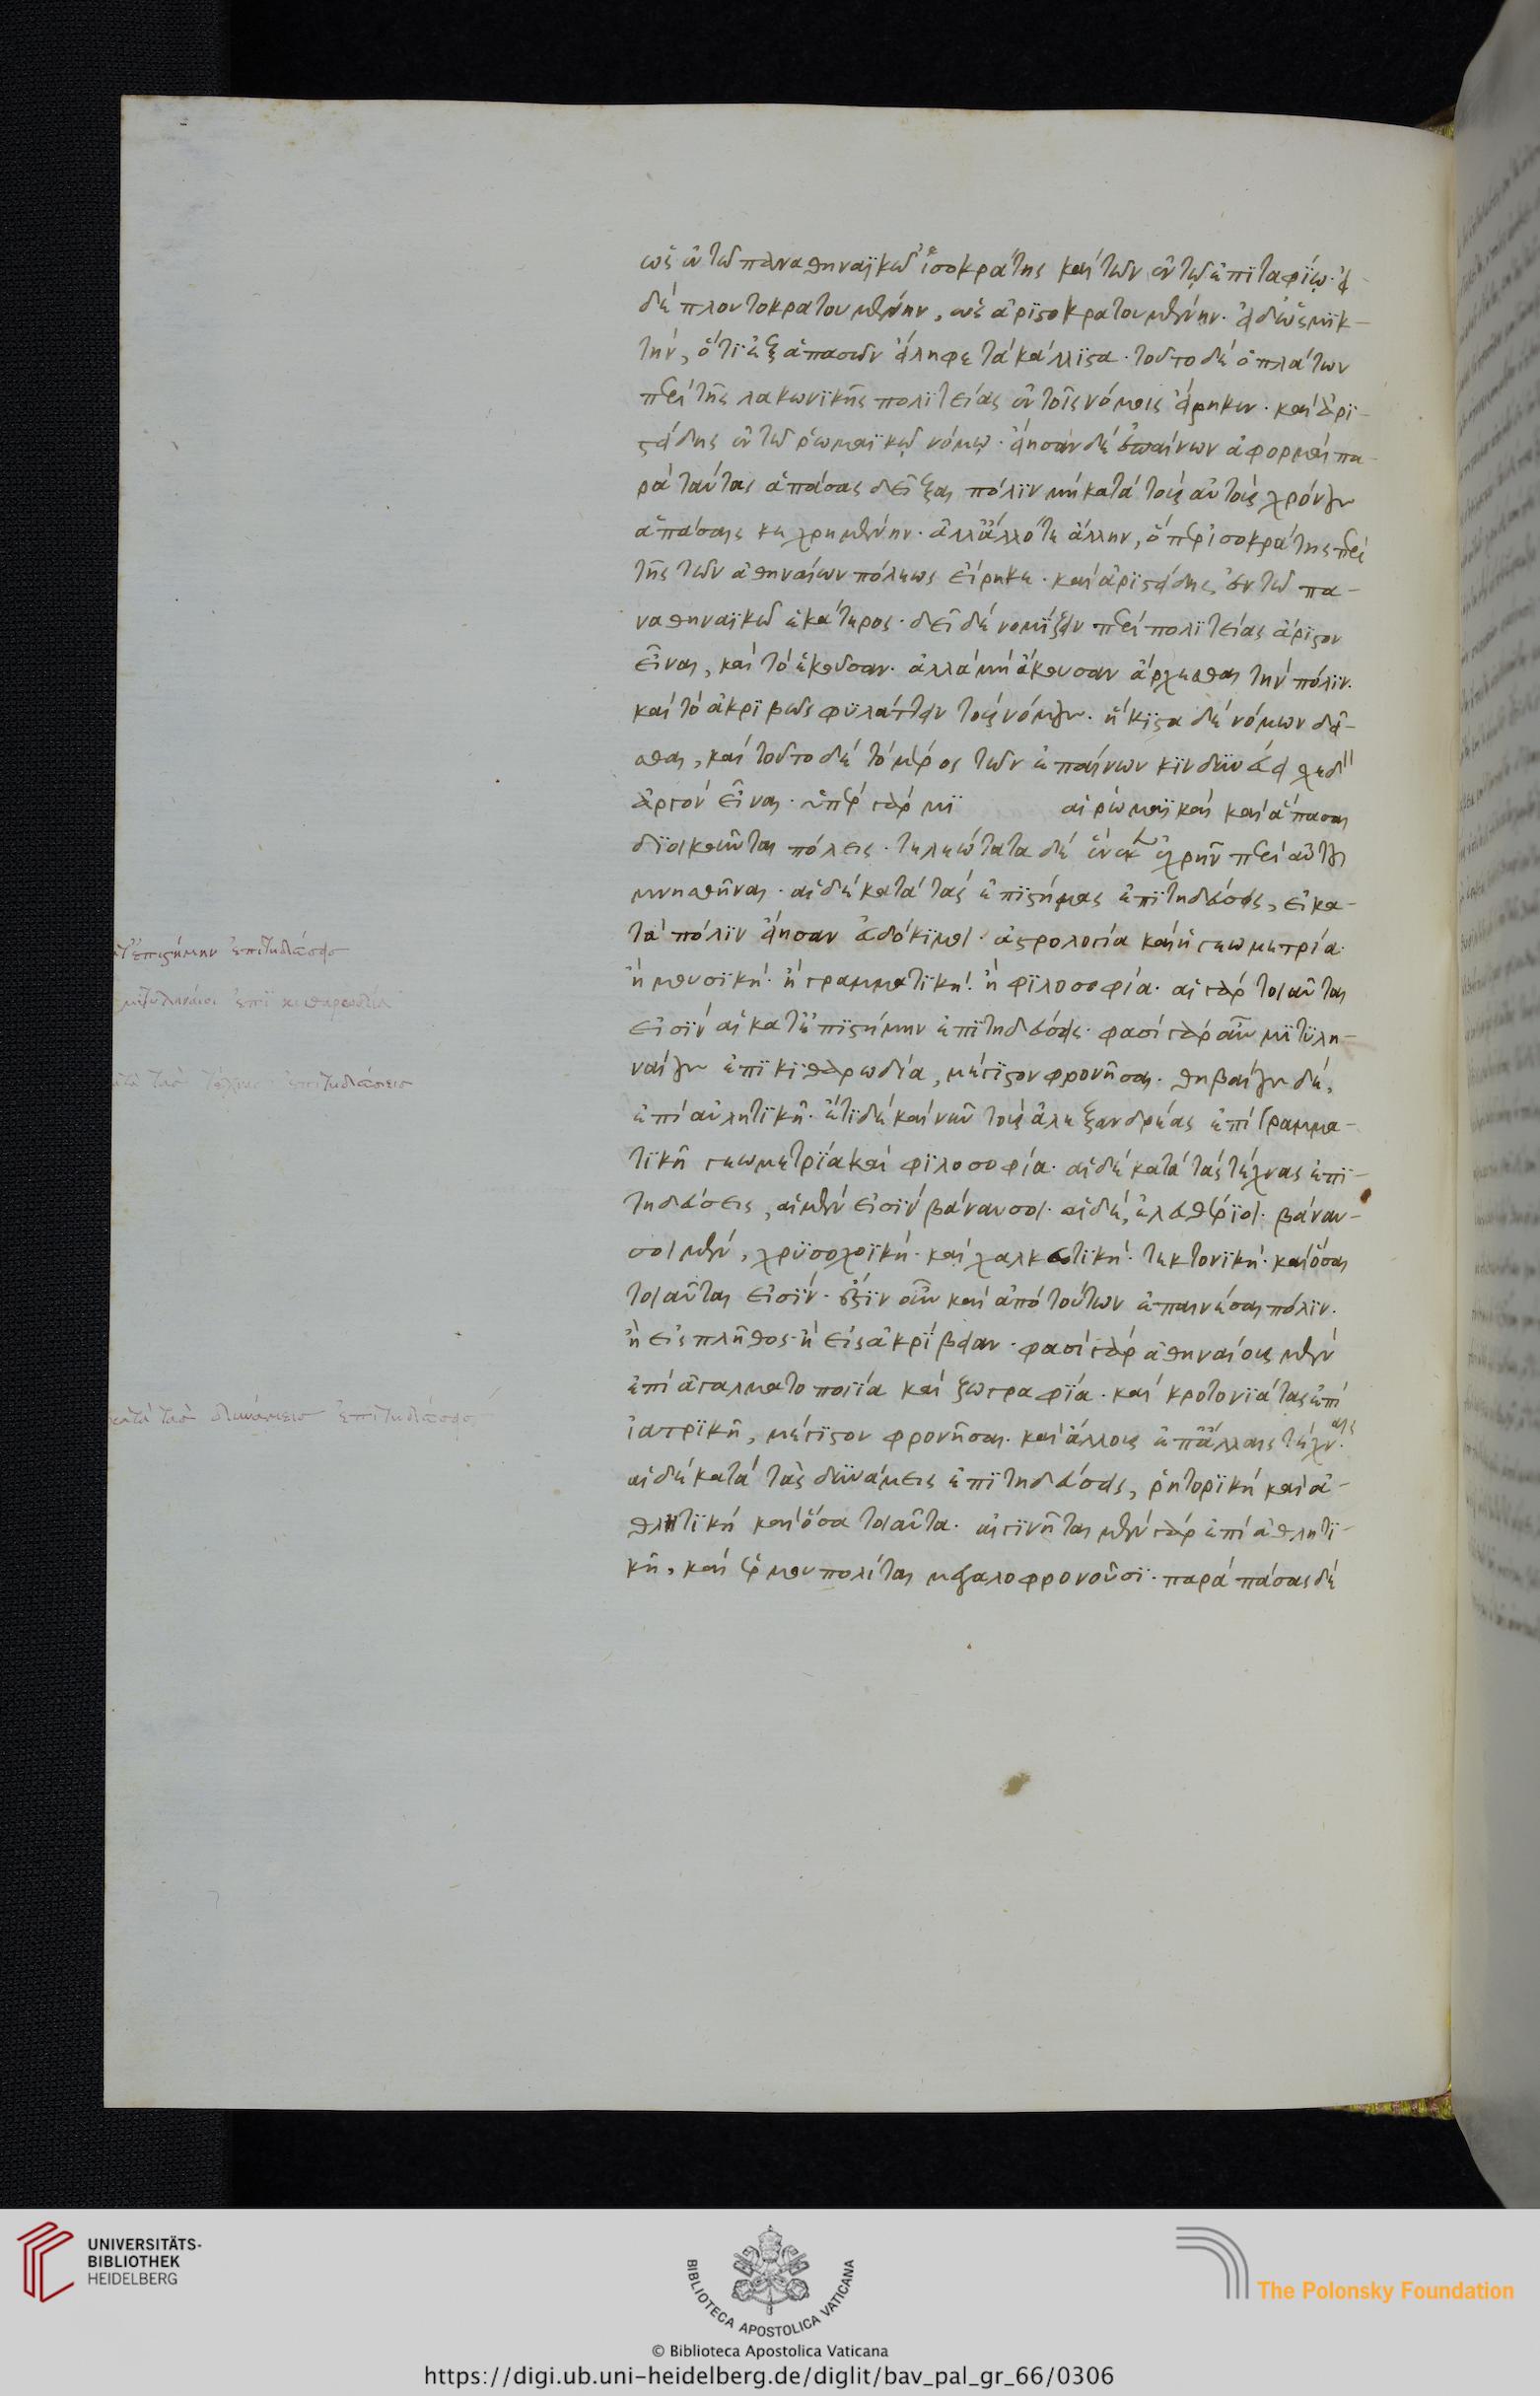 ὡς ἐν τῷ παναθηναϊκῷ ἰσοκράτης καὶ τῶν ἐν τῷ ἐπιταφίῳ· εἰ
δὲ πλουτοκρατουμένην, ὡς ἀριστοκρατουμένην. εἰ δὲ ὡς μικ-
τήν, ὅτι ἐξ ἁπασῶν εἴληφε τὰ κάλλιστα. τοῦτο δὲ ὁ πλάτων
περὶ τῆς λακωνικῆς πολιτείας ἐν τοῖς νόμοις εἴρηκεν. καὶ ἀρι-
στείδης ἐν τῷ ῥωμαϊκῷ νόμῳ. εἴησαν δὲ ἐπαίνων ἀφορμαὶ πα-
ρὰ ταύτας ἁπάσας δεῖξαι πόλιν μὴ κατὰ τοὺς αὐτοὺς χρόνους
ἁπάσαις κεχρημένην. ἀλλ' ἄλλοτε ἄλλην, ὅπερ ἰσοκράτης περὶ
τῆς τῶν ἀθηναίων πόλεως εἴρηκε. καὶ ἀριστείδης ἐν τῷ πα-
ναθηναϊκῷ ἑκάτερος. δεῖ δὲ νομίζειν περὶ πολιτείας ἄριστον
εἶναι, καὶ τὸ ἑκοῦσαν. ἀλλὰ μὴ ἄκουσαν ἄρχεσθαι τὴν πόλιν.
καὶ τὸ ἀκριβῶς φυλάττειν τοὺς νόμους. ἥκιστα δὲ νόμων δεῖ-
σθαι, καὶ τοῦτο δὲ τὸ μέρος τῶν ἐπαίνων κινδυνεύει σχεδ
ἀργὸν εἶναι. ὑπὲρ γὰρ μι αἱ ῥωμαϊκαὶ καὶ ἅπασαι
διοικοῦνται πόλεις. τελεώτατα δὲ ἕνεκ ἐχρῆν περὶ αὐτῆς
μνησθῆναι. αἱ δὲ κατὰ τὰς ἐπιστήμας ἐπιτηδεύσεις, εἰ κα-
τὰ πόλιν εἴησαν εὐδόκιμοι. ἀστρολογία καὶ ἡ γεωμετρία.
ἢ μουσική. ἢ γραμματική. ἢ φιλοσοφία. αἱ γὰρ τοιαῦται
εἰσὶν αἱ κατ' ἐπιστήμην ἐπιτηδεύσεις. φασὶ γὰρ οὖν μιτυλη-
ναίους ἐπὶ κιθαρωδία, μέγιστον φρονῆσαι. θηβαίους δὲ,
ἐπὶ αὐλητικῆ. ἔτι δὲ καὶ νῦν τοὺς ἀλεξανδρέας ἐπὶ γραμμα-
τικῆ γεωμετρία καὶ φιλοσοφία. αἱ δὲ κατὰ τὰς τέχνας ἐπι-
τηδεύσεις, αἱ μὲν εἰσὶν βάναυσοι. αἱ δὲ, ἐλευθέριοι. βάναυ-
σοι μὲν, χρυσοχοϊκή. καὶ χαλκευτική. τεκτονική. καὶ ὅσαι
τοιαῦται εἰσίν. ἔστιν οὖν καὶ ἀπὸ τούτων ἐπαινέσαι πόλιν.
ἢ εἰς πλῆθος. ἢ εἰς ἀκρίβειαν. φασὶ γὰρ ἀθηναίους μὲν
ἐπὶ ἀγαλματοποιία καὶ ζωγραφία. καὶ κροτονιάτας ἐπὶ
ἰατρικῆ, μέγιστον φρονῆσαι. καὶ ἄλλους ἐπ' ἄλλαις τέχναις.
αἱ δὲ κατὰ τὰς δυνάμεις ἐπιτηδεύσεις, ῥητορική καὶ ἀ-
θλητική καὶ ὅσα τοιαῦτα. αἰγινῆται μὲν γὰρ ἐπὶ ἀθλητι-
κῆ, καὶ ἑρμουπολίται μεγαλοφρονοῦσι. παρὰ πάσας δὲ
ἐπιστήμην ἐπιτηδεύσεις
μιτυληναῖοι ἐπὶ κιθαρωδία
κατὰ τὰς τέχνας ἐπιτηδεύσεις
κατὰ τὰς δυνάμεις ἐπιτηδεύσεις
UNIVERSITÄTS-
BIBLIOTHEK
HEIDELBERG
BIBLIOTECA APOSTOLICA VATICANA
The Polonsky Foundation
© Biblioteca Apostolica Vaticana
https://digi.ub.uni-heidelberg.de/diglit/bav_pal_gr_66/0306